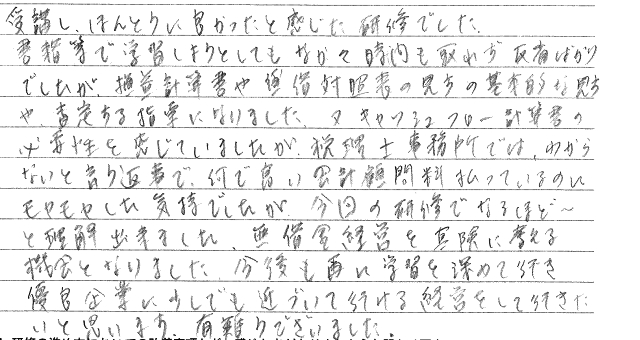 受講し、ほんとうに良かったと感じた研修でした。
書籍等で学習しようとしてもなかなか時間も取れず反省ばかり
でしたが、損益計算書や貸借対照表の見方の基本的な見方
や、査定する指票になりました。又キャッシュフロー計算書の
必要性を感じていましたが、税理士事務所では、わから
ないと言う返事で、何で高い会計顧問料払っているのに
モヤモヤした気持でしたが、今回の研修でなるほど～
と理解出来ました。無借金経営を真険に考える
機会となりました。今後も再に学習を深めて行き
優良企業に少しでも近づいて行ける経営をして行きた
いと思います。有難うございました。